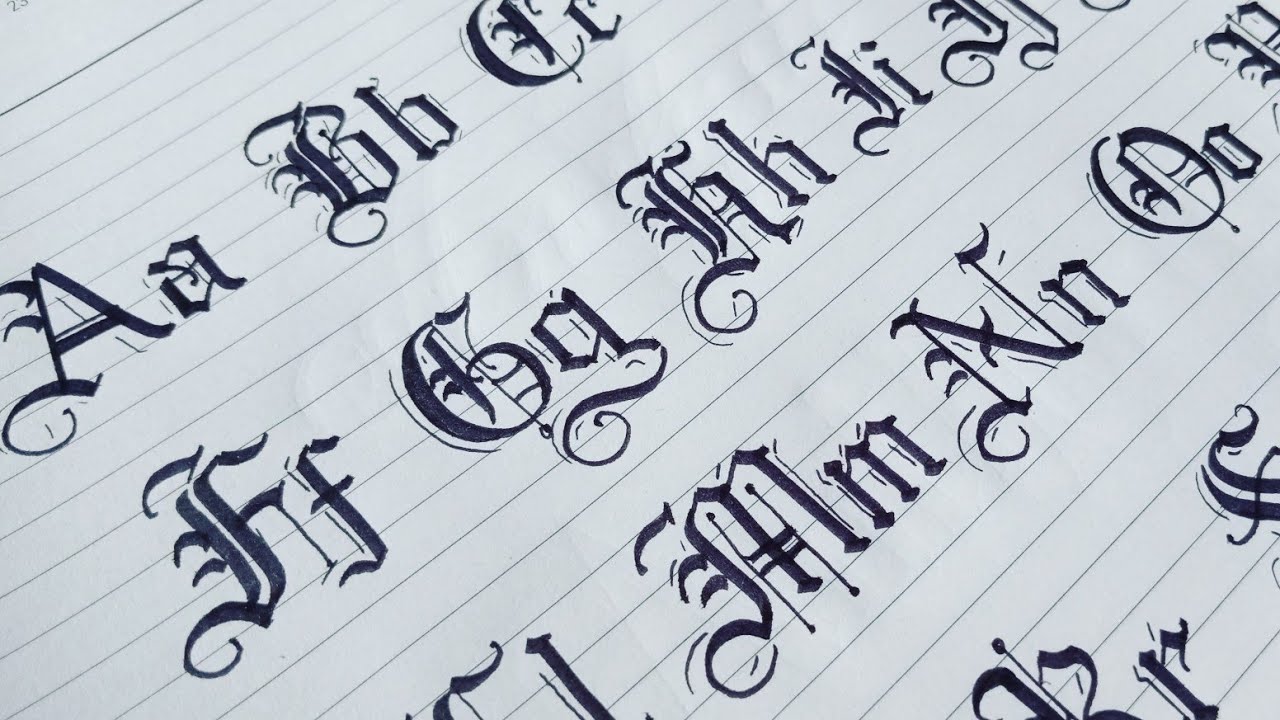 Aa Bb Cc
Ff Gg Hh Ii Jj
Ll Mm Nn Oo
Rr